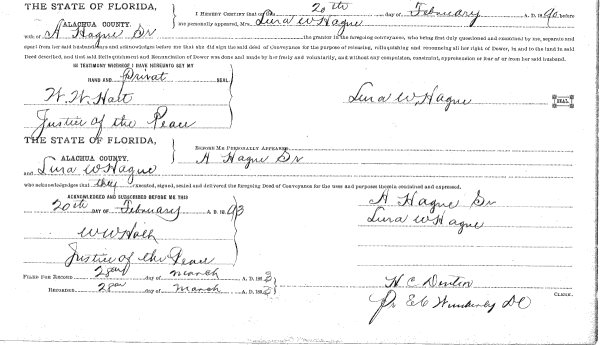 THE STATE OF FLORIDA,
ALACHUA COUNTY.
I HEREBY CERTIFY that on 20th day of February A. D. 18 before
me personally appeared, Mrs. Lura W Hague
wife of A Hague Sr the grantor in the foregoing conveyance, who being first duly questioned and examined by me, separate and
apart from her said husband, says and acknowledges before me that she did sign the said deed of Conveyance for the purpose of releasing, relinquishing and renouncing all her right of Dower, in and to the land in said
Deed described, and that said Relinquishment and Renunciation of Dower was done and made by her freely and voluntarily, and without any compulsion, constraint, apprehension or fear of or from her said husband.
IN TESTIMONY WHEREOF I HAVE HEREUNTO SET MY
HAND AND Privat SEAL
W. W. Halt
Justice of the Peace
Lura W Hague SEAL
THE STATE OF FLORIDA,
ALACHUA COUNTY.
BEFORE ME PERSONALLY APPEARED
A Hague Sr
and Lura W Hague
who acknowledges that they executed, signed, sealed and delivered the foregoing Deed of Conveyance for the uses and purposes therein contained and expressed.
ACKNOWLEDGED AND SUBSCRIBED BEFORE ME THIS
20th DAY OF February A. D. 18
W W Halt
Justice of the Peace
A Hague Sr
Lura W Hague
FILED FOR RECORD day of March A. D. 18
RECORDED day of March A. D. 18
H. C. Denton CLERK.
Pr E C DC